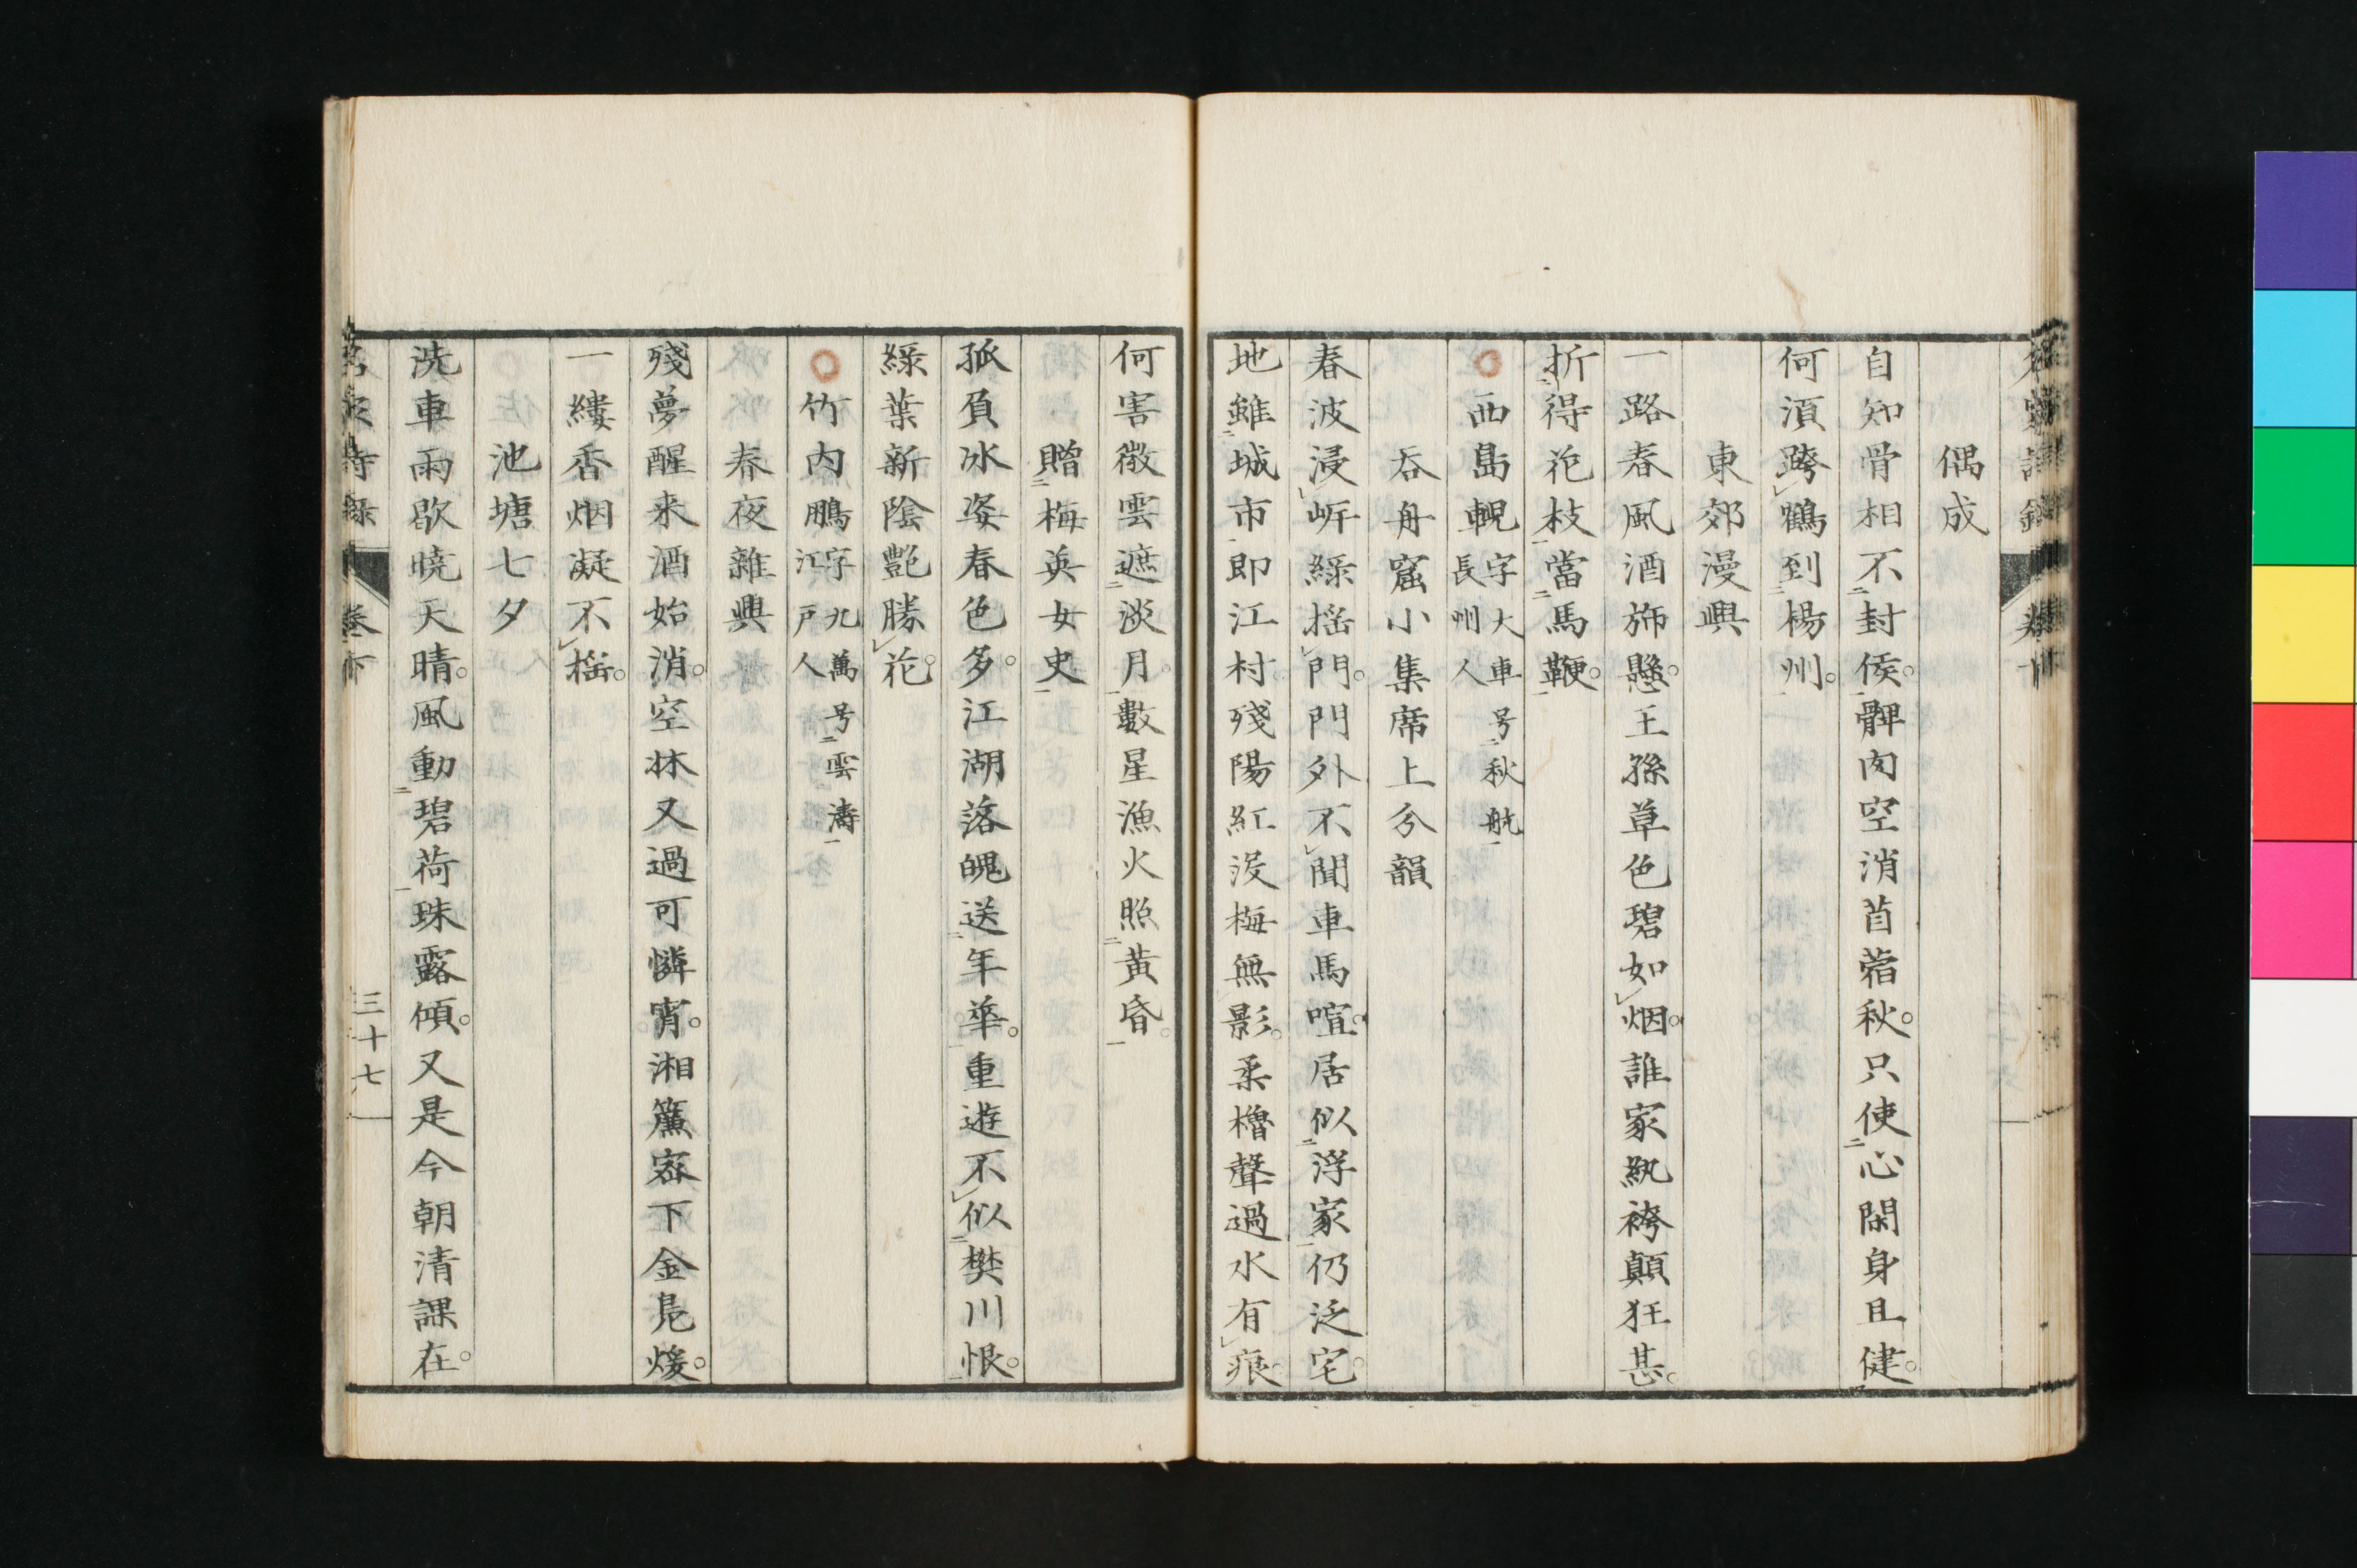 偶成
自知骨相不封侯髀肉空消苜蓿秋只使心閑身且健
何須跨鶴到楊州
東郊漫興
一路春風酒斾懸王孫草色碧如烟誰家紈袴顛狂甚
折得花枝當馬鞭
西島輗字大車号秋航長州人
春波浸岸綠搖門門外不聞車馬喧居似浮家仍泛宅
吞舟窟小集席上分韻
地雖城市即江村殘陽紅沒梅無影柔櫓聲過水有痕
何害微雲遮淡月數星漁火照黃昏
贈梅英女史
孤負冰姿春色多江湖落魄送年華重遊不似樊川恨
綠葉新陰艷勝花
竹内鵬字九萬号雲濤江戸人
春夜雜興
殘夢醒来酒始消空牀又過可憐宵湘簾密下金凫煖
一縷香烟凝不搖
池塘七夕
洗車雨歇曉天晴風動碧荷珠露傾又是今朝清課在
名家詩錄 卷下 三十七